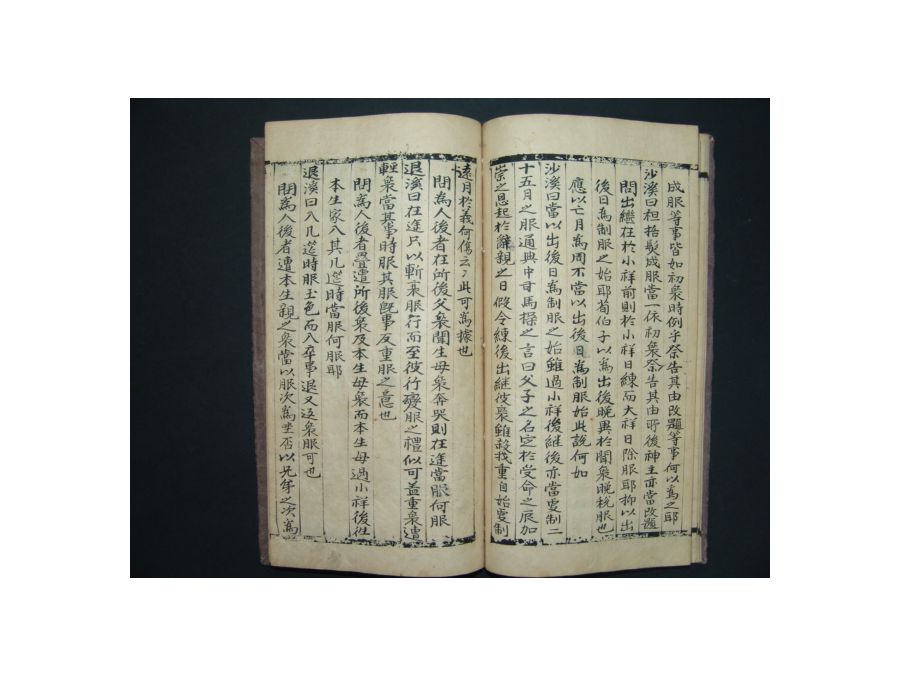 成服等事皆如初喪時例乎祭告其由改題等事何以為之耶
沙溪曰袒括髮成服當一依初喪祭告其由所後神主亦當改題
問出繼在於小祥前則於小祥日練而大祥日除服耶抑以出
後日為制服之始耶荀伯子以為出後晚異於聞喪晚稅服也
應以亡月為周不當以出後日為制服始此說何如
沙溪曰當以出後日為制服之始雖過小祥後繼後亦當更制二
十五月之服通典中司馬操之言曰父子之名定於受命之辰加
崇之恩起於辭親之日假令練後出繼彼喪雖殺我重自始更制
遠月於義何傷云云此可為據也
問為人後者在所後父喪聞生母喪奔哭則在途當服何服
退溪曰在途只以斬衰服行而至彼行變服之禮似可盖重喪遭
輕喪當其事時服其服旣事反重服之意也
問為人後者疊遭所後喪及本生母喪而本生母過小祥後徃
本生家入其几筵時當服何服耶
退溪曰入几筵時服玉色而入卒事退又返喪服可也
問為人後者遭本生親之喪當以服次為坐否以兄弟之次為